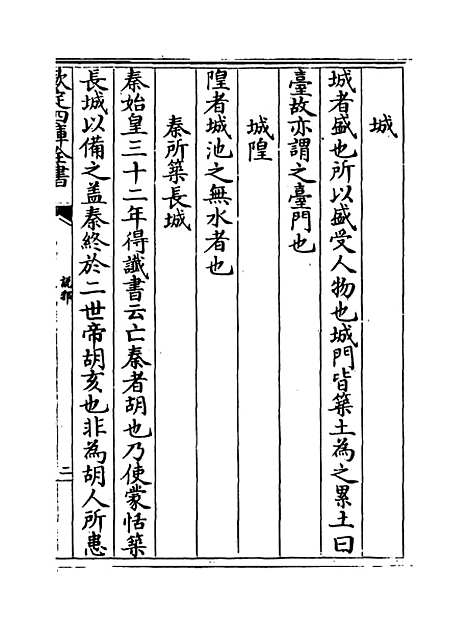 城
城者盛也所以盛受人物也城門皆築土為之累土曰
臺故亦謂之臺門也
城隍
隍者城池之無水者也
秦所築長城
秦始皇三十二年得讖書云亡秦者胡也乃使蒙恬築
長城以備之盖秦終於二世帝胡亥也非為胡人所患
欽定四庫全書
說郛
二